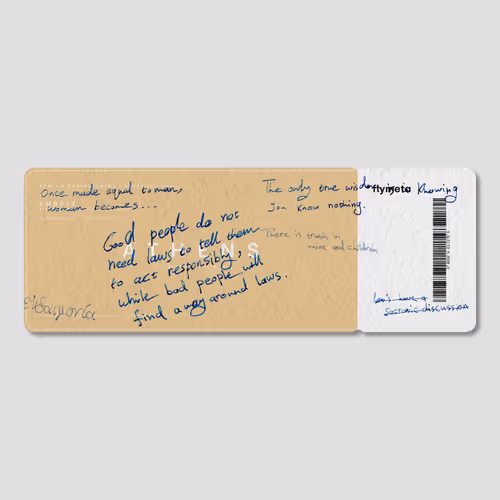 Once made equal to man,
woman becomes...
The only true wisdom is in Knowing
you know nothing.
flymeta
Good people do not
need laws to tell them
to act responsibly,
while bad people will
find a way around laws.
ATHENS
There is truth in
wine and children
εὐδαιμονία
Let's have a
Socratic discussion